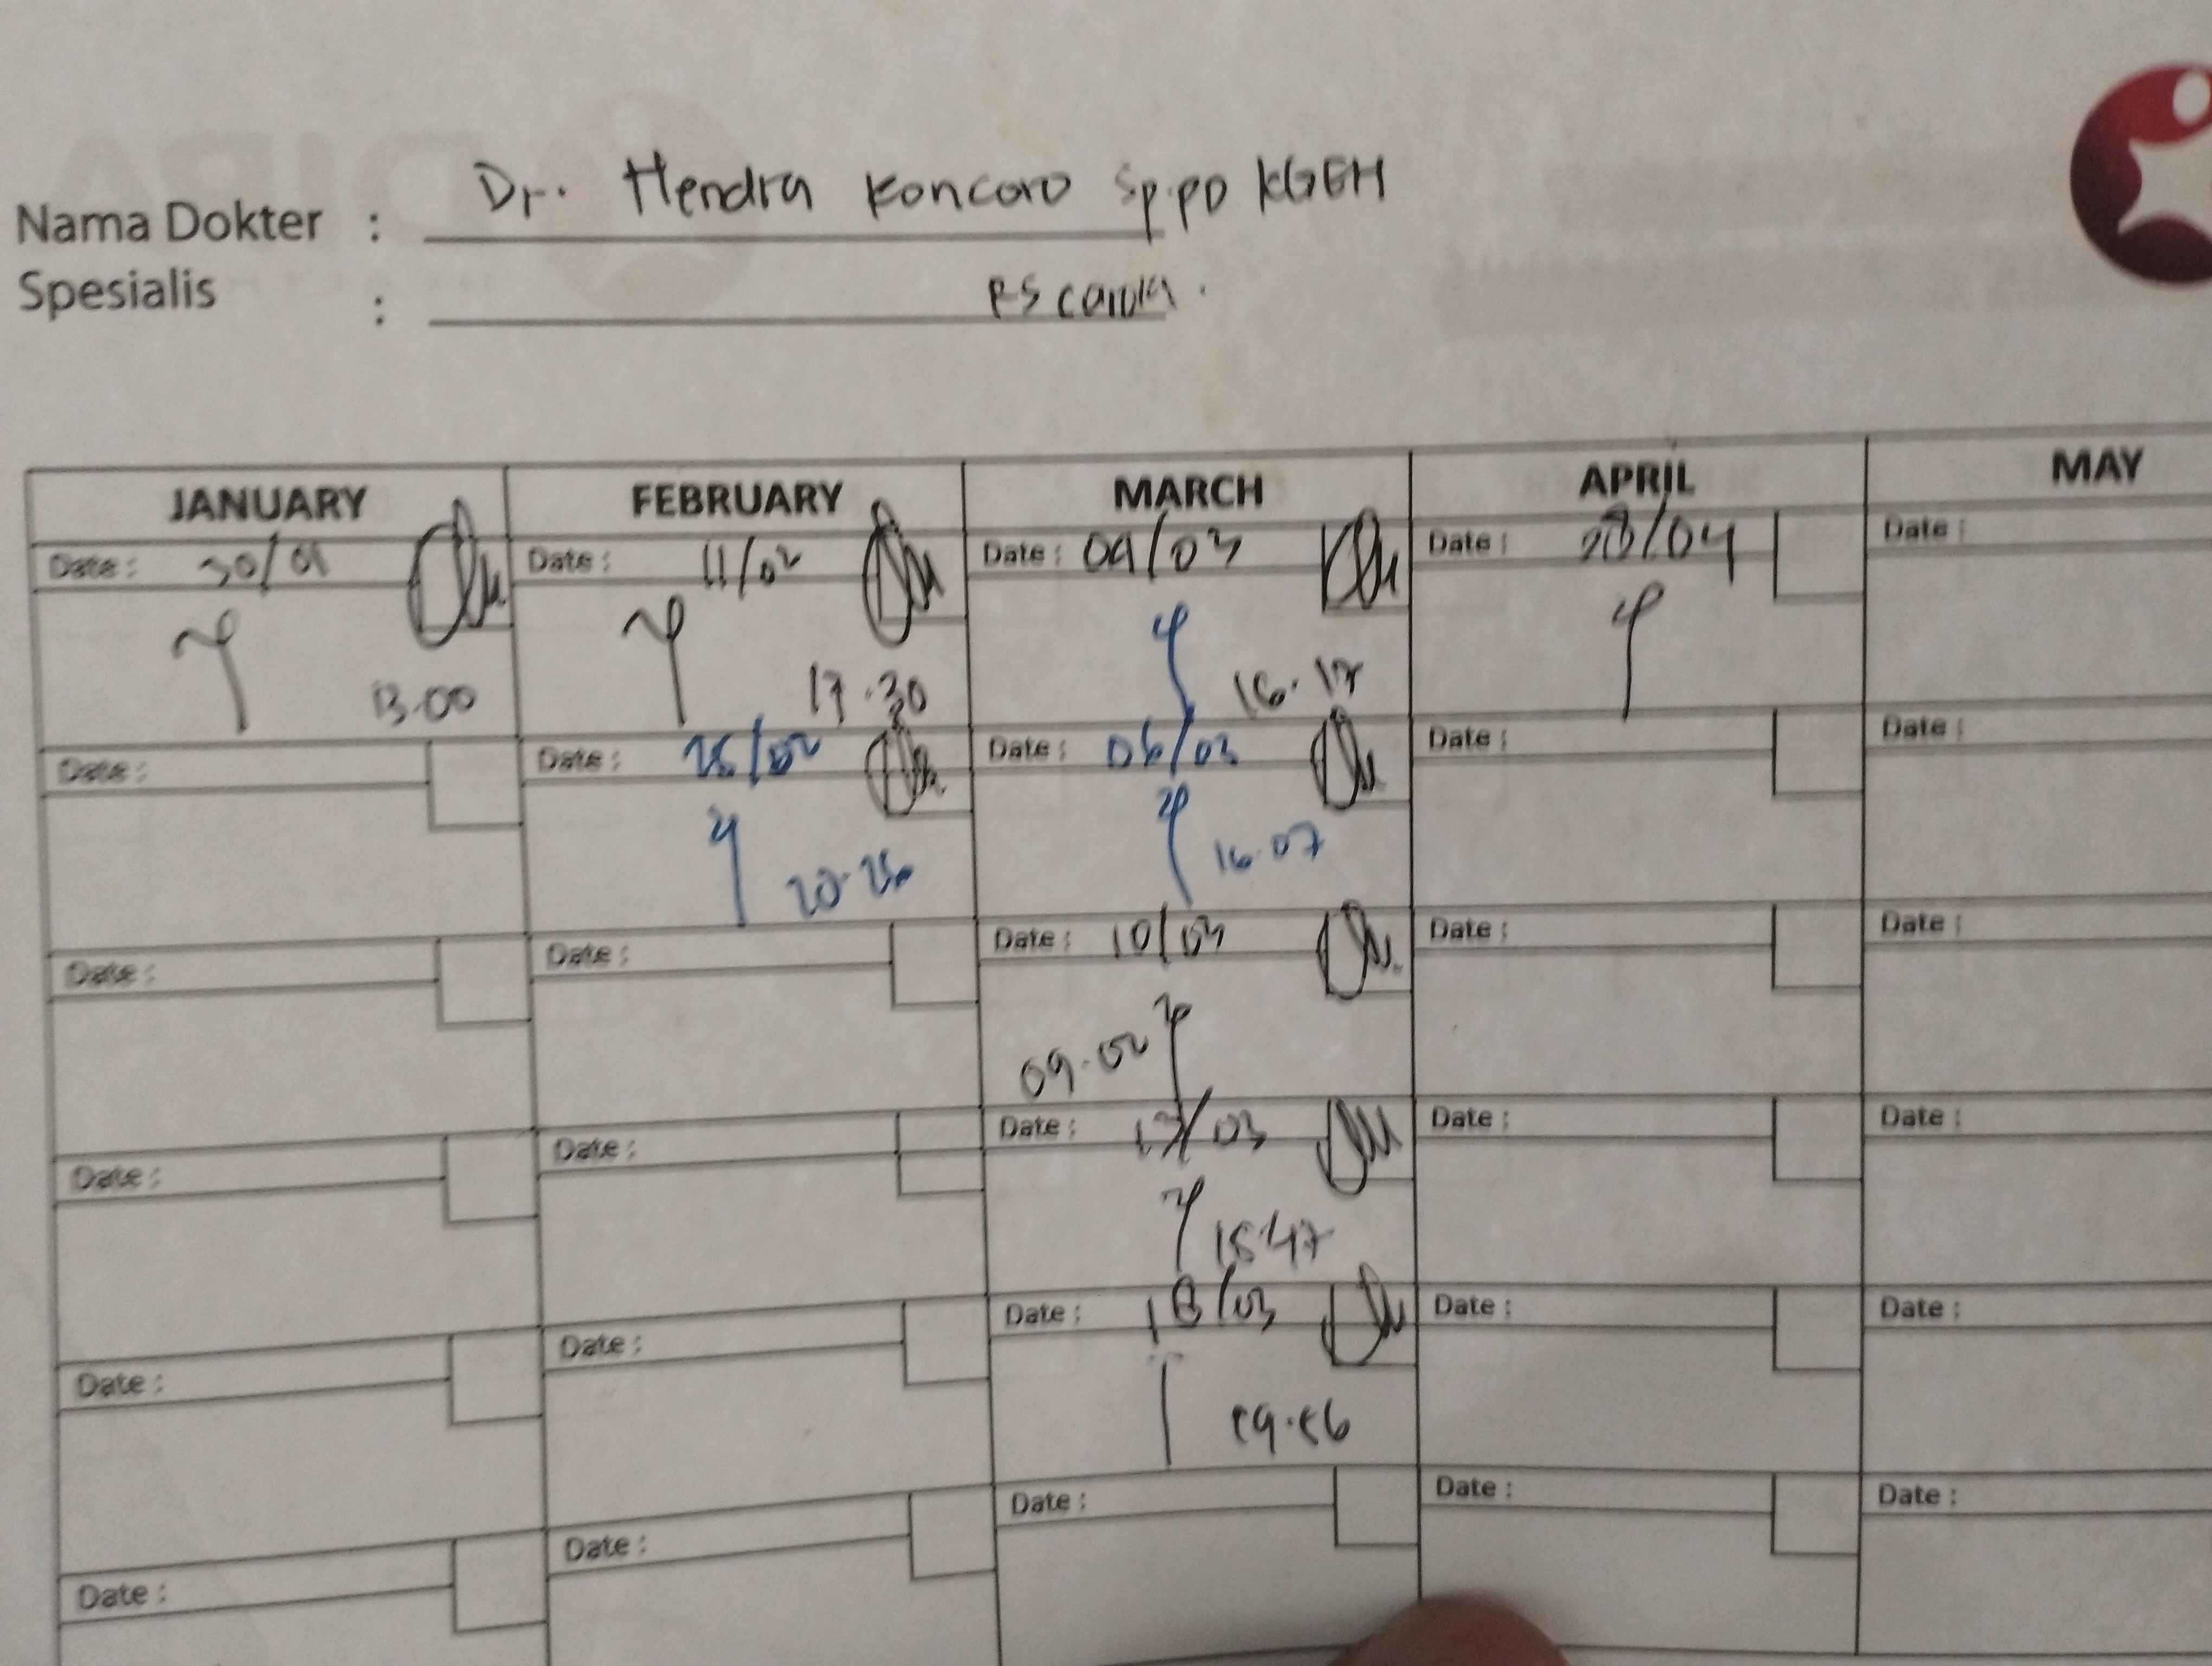 Nama Dokter : Dr. Hendra Koncoro Sp.PD KGEH
Spesialis : RS
JANUARY FEBRUARY MARCH APRIL MAY
Date: 30/01 Date: 11/02 Date: 04/03 Date: /04 Date:
13.00 17.30 16.17
Date: Date: 25/02 Date: 06/03 Date: Date:
20.26 16.07
Date: Date: Date: 10/03 Date: Date:
09.02
Date: Date: Date: 17/03 Date: Date:
15.47
Date: Date: Date: 18/03 Date: Date:
Date: Date: Date: Date: Date: